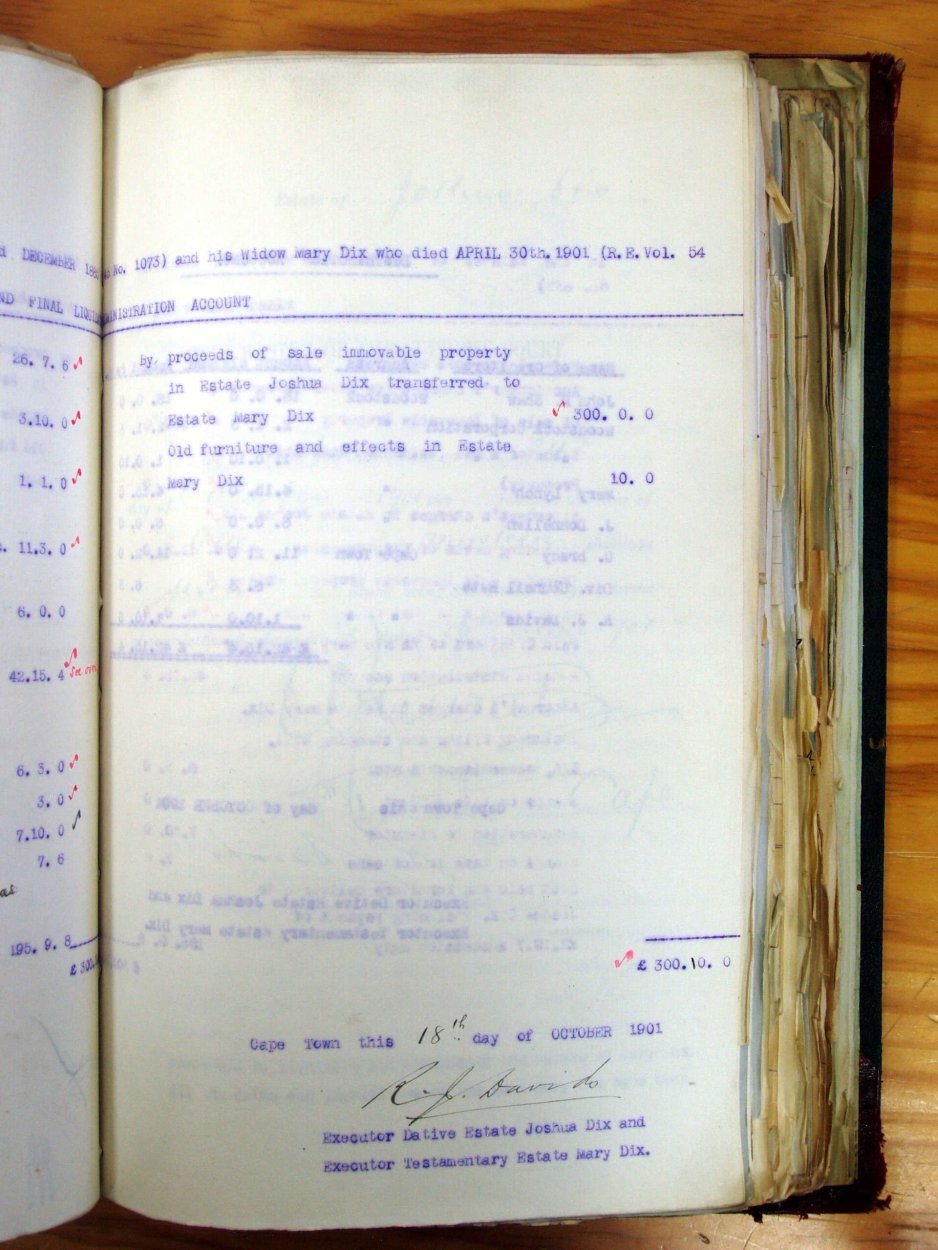 d DECEMBER 189
ND FINAL LIQUI
26. 7. 6
3.10. 0
1. 1. 0
11.3. 0
6. 0. 0
42.15. 4 See over
6. 3. 0
3. 0
7.10. 0
7. 6
as
195. 9. 8
£ 300.
No. 1073) and his Widow Mary Dix who died APRIL 30th. 1901 (R.E.Vol. 54
MINISTRATION ACCOUNT
By proceeds of sale immovable property
in Estate Joshua Dix transferred to
Estate Mary Dix 300. 0. 0
Old furniture and effects in Estate
Mary Dix 10. 0
£ 300.10. 0
Cape Town this 18th day of OCTOBER 1901
R. J. Davids
Executor Dative Estate Joshua Dix and
Executor Testamentary Estate Mary Dix.